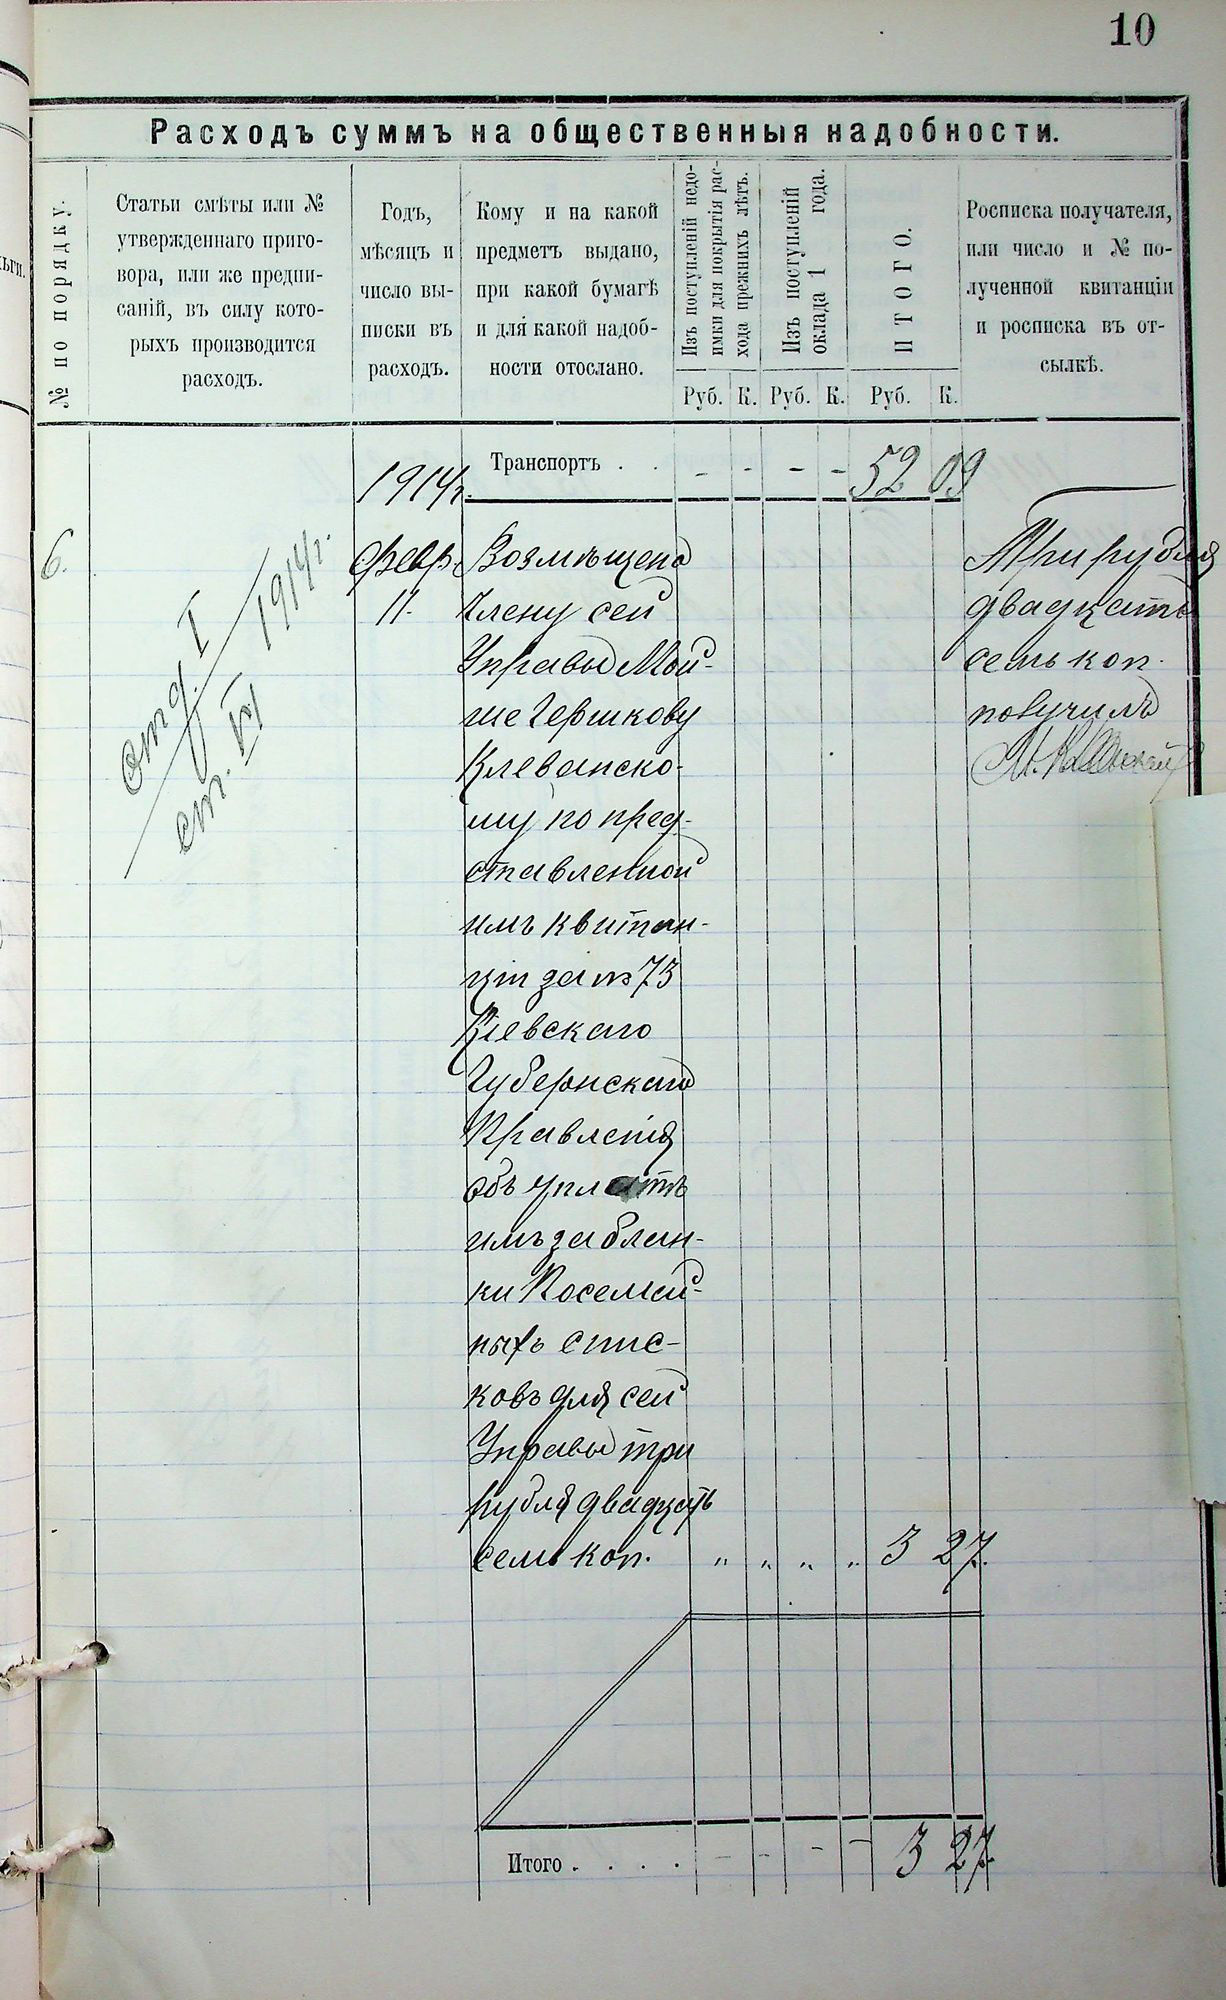 10
Расходъ суммъ на общественныя надобности.
№ по порядку.
Статьи смѣты или №
утвержденнаго приго-
вора, или же предпи-
саній, въ силу кото-
рыхъ производится
расходъ.
Годъ,
мѣсяцъ и
число вы-
писки въ
расходъ.
Кому и на какой
предметъ выдано,
при какой бумагѣ
и для какой надоб-
ности отослано.
Изъ поступленій недо-
имки для покрытія рас-
хода прежнихъ лѣтъ.
Изъ поступленій
оклада 1 года.
ИТОГО.
Росписка получателя,
или число и № по-
лученной квитанціи
и росписка въ от-
сылкѣ.
Руб. К. Руб. К. Руб. К.
Транспортъ . . - - - - 52 09
1914г.
6.
отд. I
ст. VI 1914г.
Февр.
11.
Возмѣщено
Члену сей
Управы Мой-
ше Гершкову
Клеванско-
му по пред-
ставленной
имъ квитан-
ціи за № 73
Кіевскаго
Губернскаго
Правленія
объ уплатѣ
имъ за блан-
ки Посемей-
ныхъ спис-
ковъ для сей
Управы три
рубля двадцать
семь коп. " " " " 3 27.
Три рубля
двадцать
семь коп.
получилъ
Итого . . . . - - - - 3 27